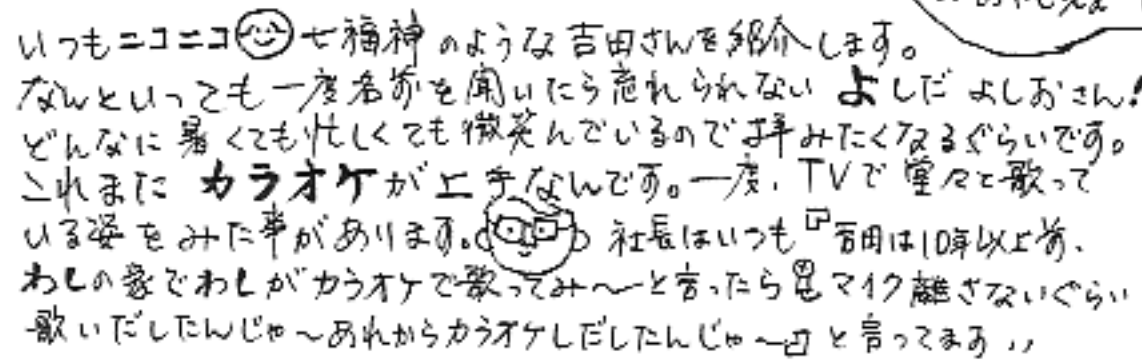 いつもニコニコ七福神のような吉田さんを紹介します。
なんといっても一度名前を聞いたら忘れられないよしだよしおさん!
どんなに暑くても忙しくても微笑んでいるので拝みたくなるぐらいです。
これまたカラオケが上手なんです。一度、TVで堂々と歌って
いる姿をみた事があります。社長はいつも『吉田は10年以上前、
わしの家でわしがカラオケで歌ってみ〜と言ったらマイク離さないぐらい
歌いだしたんじゃ〜あれからカラオケしだしたんじゃ〜』と言ってます〃